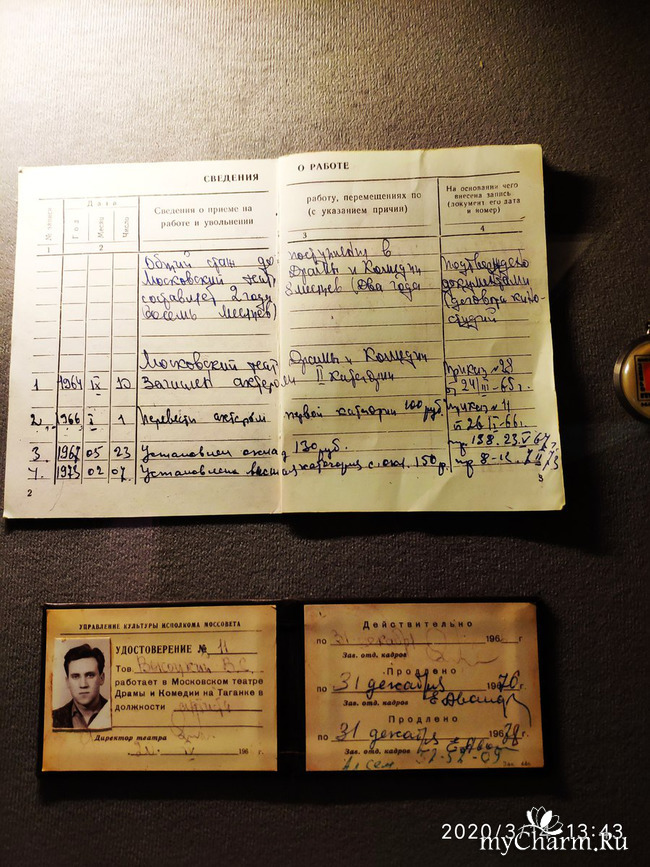 СВЕДЕНИЯ О РАБОТЕ
№ записи
Дата
Год
Месяц
Число
Сведения о приеме на
работе и увольнении
работу, перемещениях по
(с указанием причин)
На основании чего
внесена запись
(документ, его дата
и номер)
1 2 3 4
Общий стаж до поступления в
Московский театр Драмы и Комедии
составляет 2 года 8 месяцев (два года
восемь месяцев)
Подтверждено
документами
студий
Московский театр Драмы и Комедии
1 1964 IX 10 Зачислен актером II категории
Приказ №28
2. 1966 I 1 Перевести актером первой категории 100 руб.
Приказ №11
3 1967 05 23 Установлен оклад 130 руб.
пр. 138. 23.V 67г.
4. 1973 02 07. Установлена высшая категория с окл. 150 р.
2
3
УПРАВЛЕНИЕ КУЛЬТУРЫ ИСПОЛКОМА МОССОВЕТА
УДОСТОВЕРЕНИЕ № 11
Тов Высоцкий В.С.
работает в Московском театре
Драмы и Комедии на Таганке в
должности артиста
Директор театра
196 г.
Действительно
по 31 декабря 196 г.
Зав. отд. кадров
Продлено
по 31 декабря 1970г.
Зав. отд. кадров
Продлено
по 31 декабря 1978г.
Зав. отд. кадров
2020/3/ 13:43
myCharm.Ru